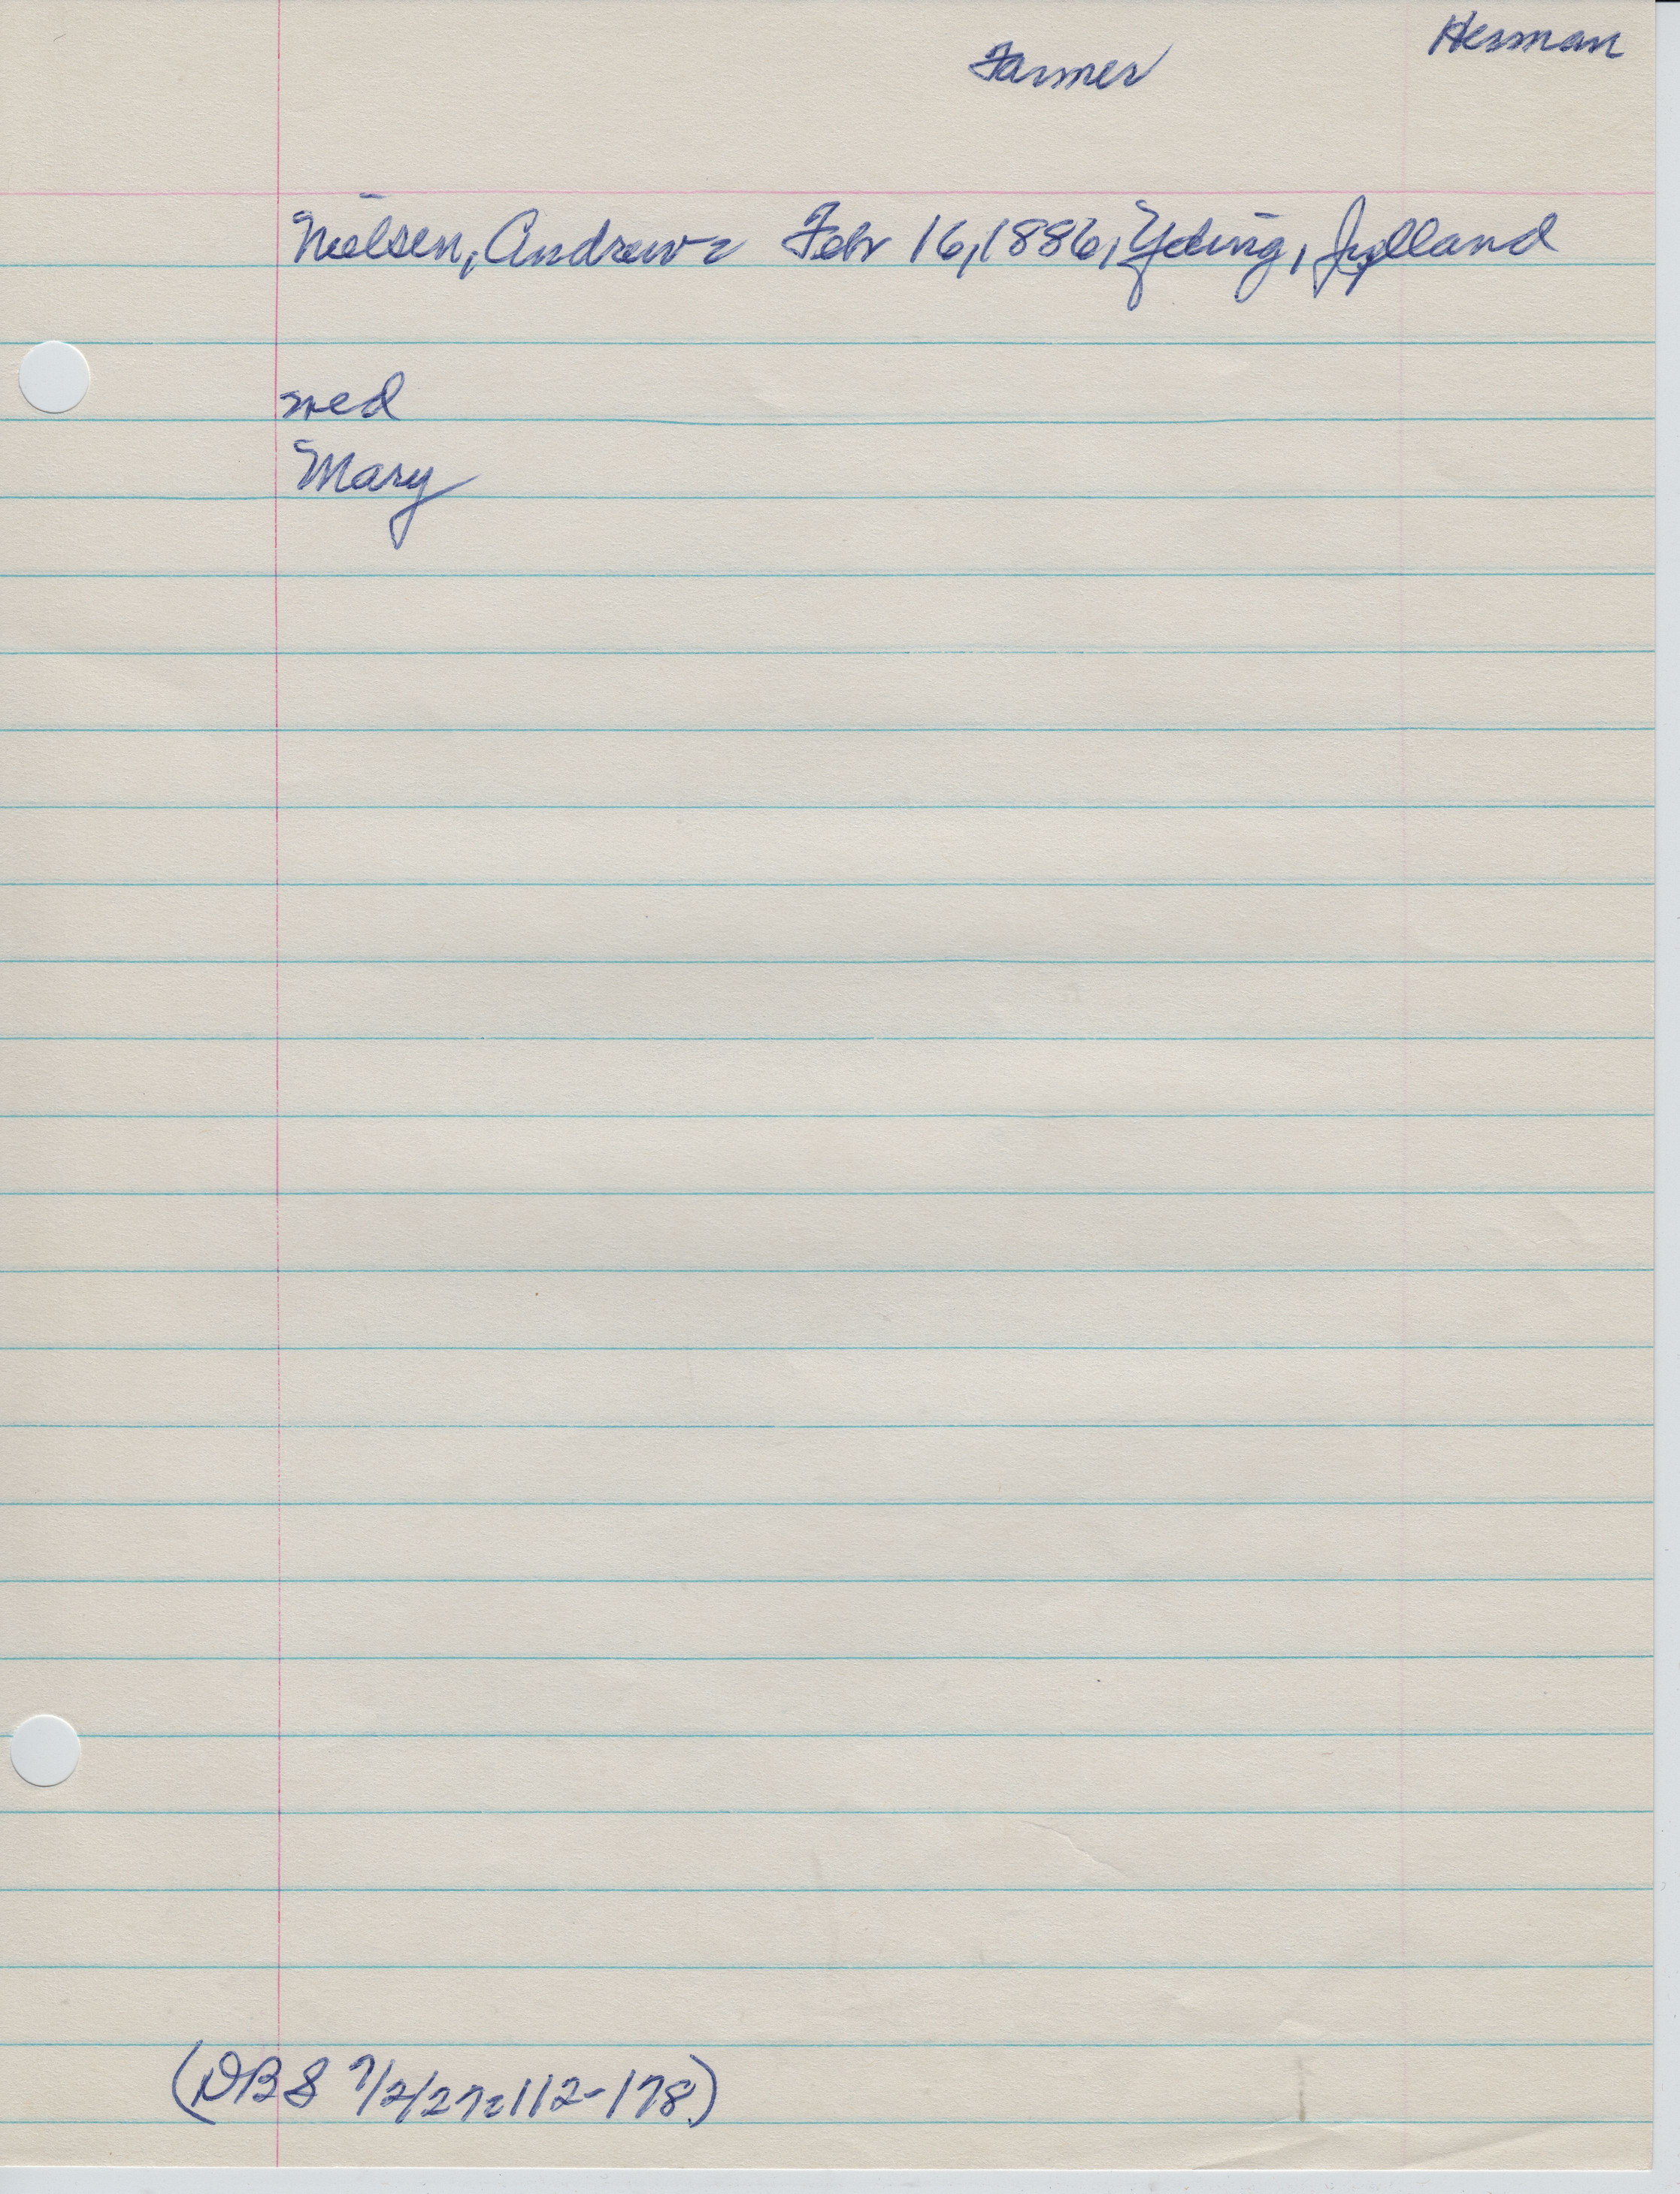 Herman
Farmer
Nielsen, Andrew: Febr 16, 1886, Yding, Jylland
med
Mary
(DBS 7/2/27:112-178)